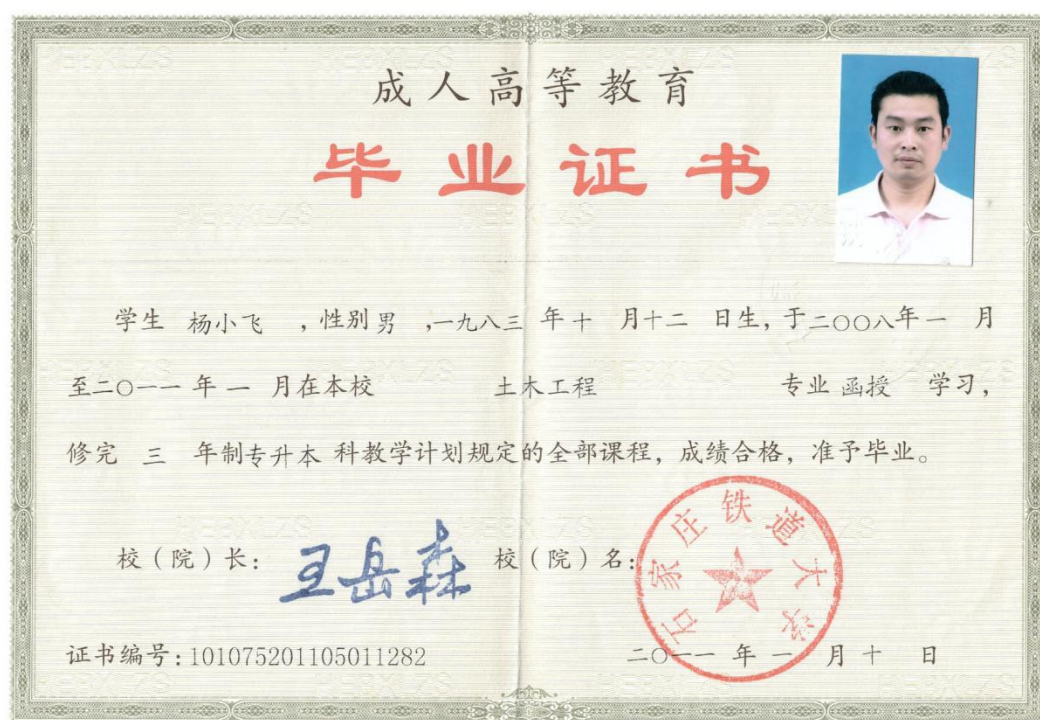 成人高等教育
毕业证书
学生 杨小飞 ，性别 男 ，一九八三 年 十 月十二 日生，于二〇〇八年 一 月
至二〇一一 年 一 月在本校 土木工程 专业 函授 学习，
修完 三 年制专升本 科教学计划规定的全部课程，成绩合格，准予毕业。
校（院）长：王岳森 校（院）名：
石家庄铁道大学
证书编号：101075201105011282 二〇一一 年 一 月 十 日
HEBXLZS